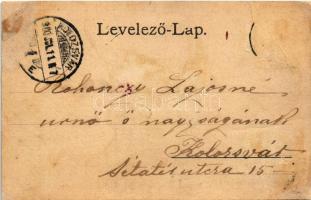 Levelező-Lap.
Rohonczy Lajosné
urnő ő nagyságának
Kolozsvár
Sétatér utcza 15